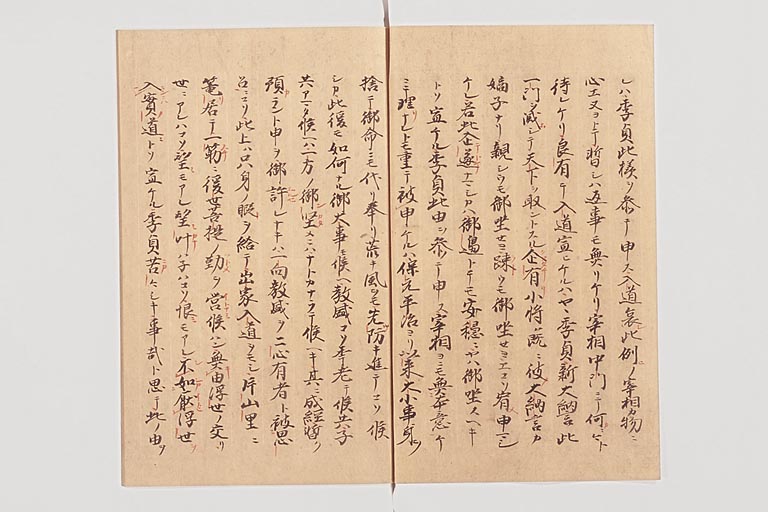 レハ季貞此様ヲ参テ申ス入道哀此例ノ宰相カ物ニ
心エヌヨトテ暫シハ返事モ無リケリ宰相中門ニテ何ニト
待レケリ良有テ入道宣ヒケルハヤヽ季貞新大納言此
一門ヲ滅シテ天下ヲ取ントスル企有小将ハ既ニ彼大納言カ
嫡子ナリ親シウモ御坐セヨ疎ウモ御坐セヨエコソ宥申マシ
ケレ若此企遂ナマシカハ御邊トテモ安穏ニヤハ御坐スヘキ
トソ宣ケル季貞此由ヲ参テ申ス宰相ヨニモ無本意ケ
ニテ重テ被申ケルハ保元平治ヨリ以来大小事身ヲ
捨テ御命ニモ代リ奉リ荒キ風ヲモ先防キ進テコソ候
シカ此後モ如何ナル御大事モ候ヘ教盛コソ年老テ候共子
共アマタ候ヘハ一方ノ御堅ニハナトカナラテ候ヘキ其ニ成経暫ク
預ラント申ヲ御許レナキハ一向教盛ヲ二心有者ト被思
召ニコソ此上ハ只身ノ暇ヲ給テ出家入道ヲモシ片山里ニ
篭居テ一筋ニ後世菩提ノ勤ヲ営候ハン無由浮世ノ交リ
世ニアレハコソ望モアレ望叶ハネハコソ恨モアレ不如厭浮世ヲ
入實道トソ宣ケル季貞苦々シキ事哉ト思テ此ノ由ヲ